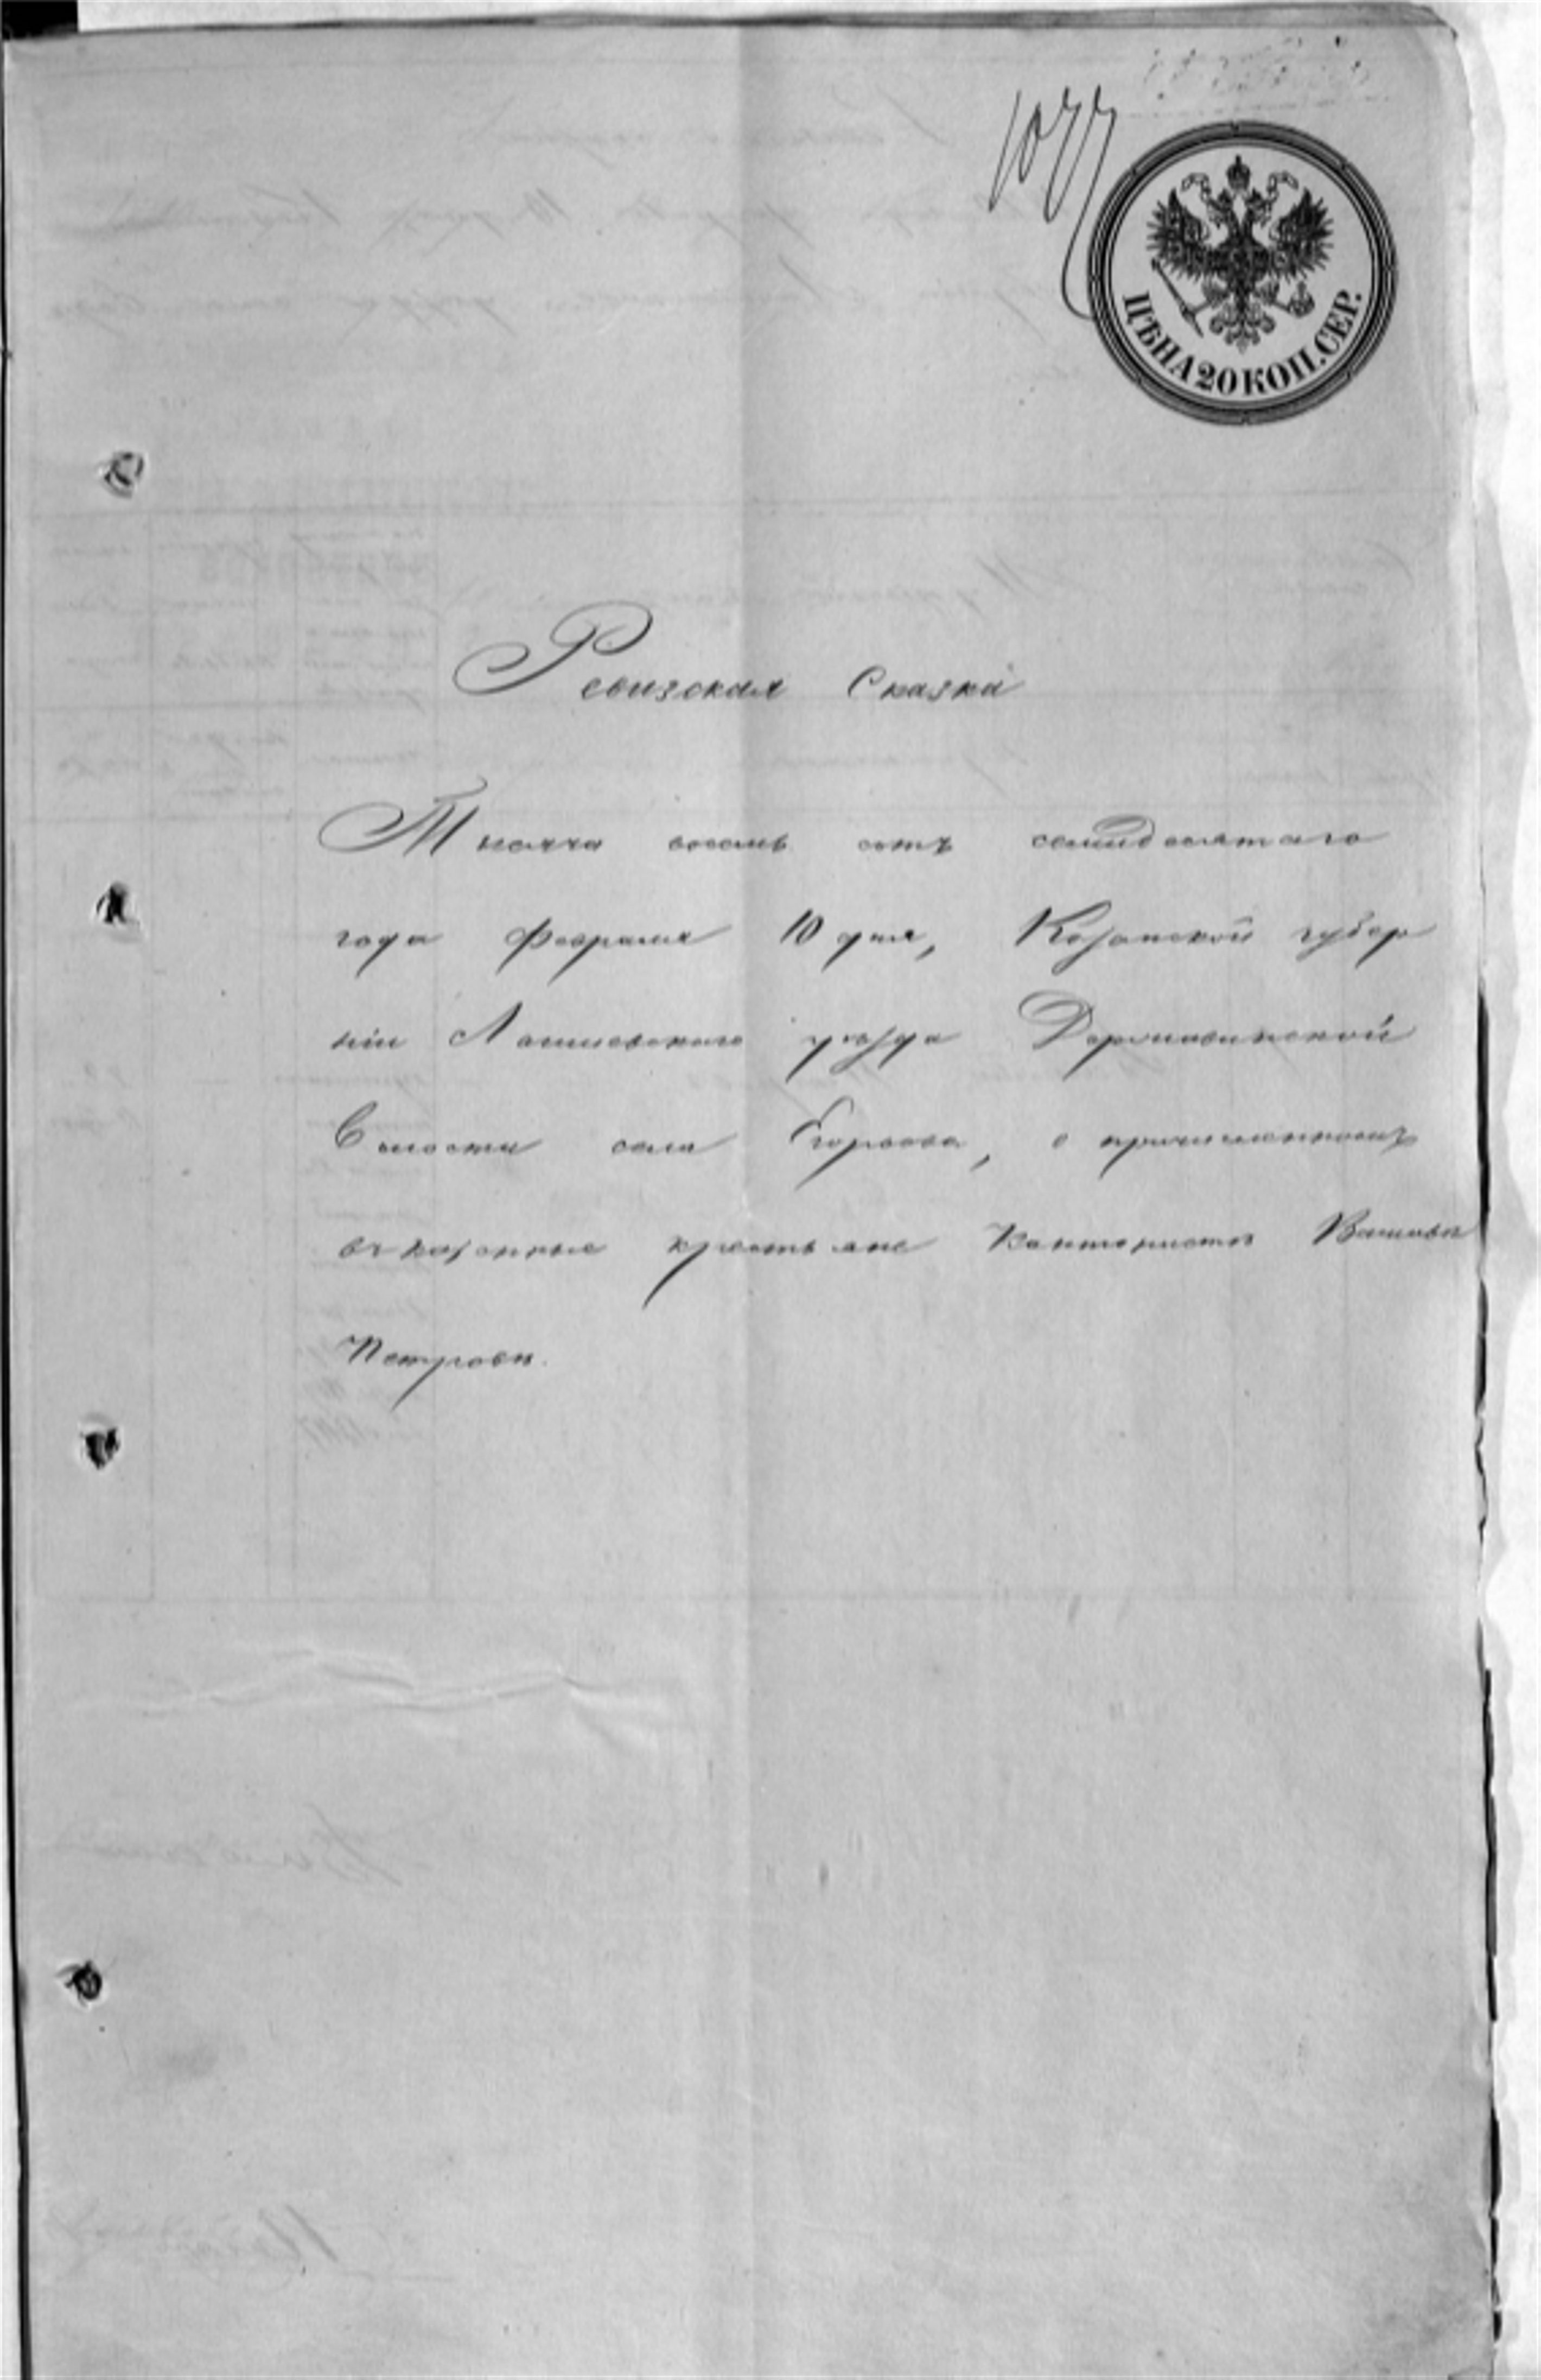 1077
ЦѢНА 20 КОП. СЕР.
Ревизская Сказка
Тысяча восемь сотъ семидесятаго
года Февраля 10 дня, Казанской губер
ніи Лаишевскаго уѣзда Державинской
Волости села Егорьева, о причисленномъ
въ казенные крестьяне Кантористѣ
Петровѣ.